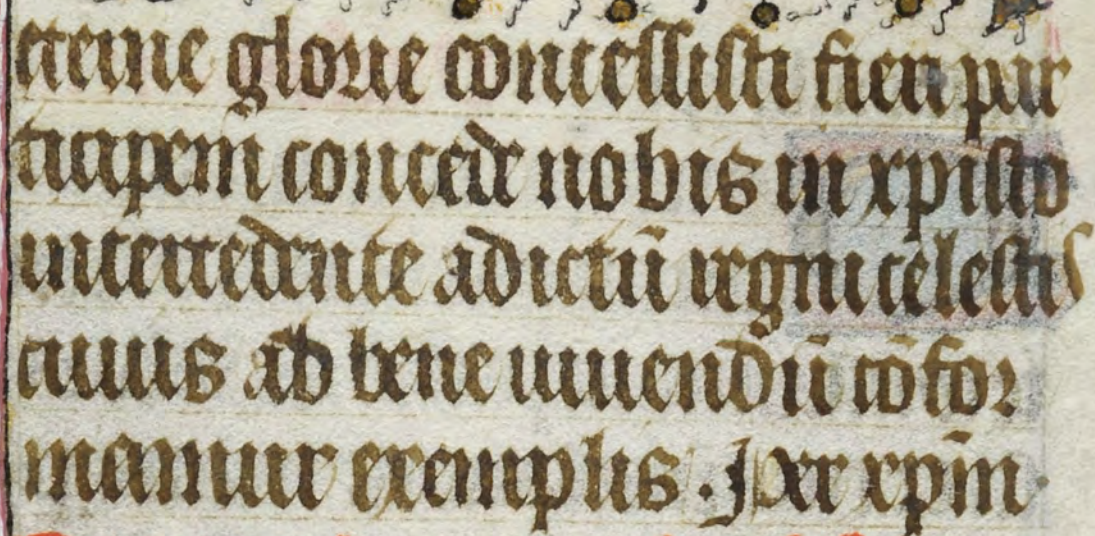 eterne glorie concessisti fieri par
ticipem concede nobis in xpisto
intercedente adictū regni celestis
cuius ab bene uiuendū cōfor
mamur exemplis. Per xpm̄.